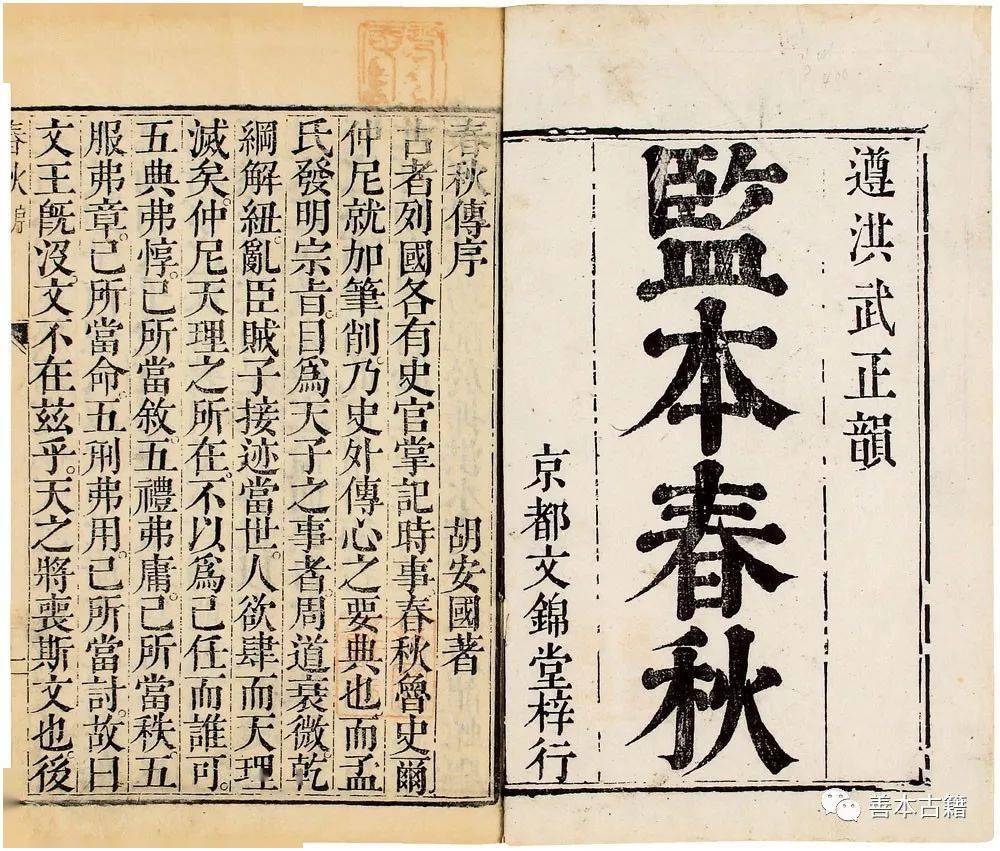 遵洪武正韻
監本春秋
京都文錦堂梓行
春秋傳序
胡安國著
古者列國各有史官掌記時事春秋魯史爾
仲尼就加筆削乃史外傳心之要典也而孟
氏發明宗旨目爲天子之事者周道衰微乾
綱解紐亂臣賊子接迹當世人欲肆而天理
滅矣仲尼天理之所在不以爲己任而誰可
五典弗惇己所當敘五禮弗庸己所當秩五
服弗章己所當命五刑弗用己所當討故曰
文王旣沒文不在茲乎天之將喪斯文也後
春秋
一
善本古籍